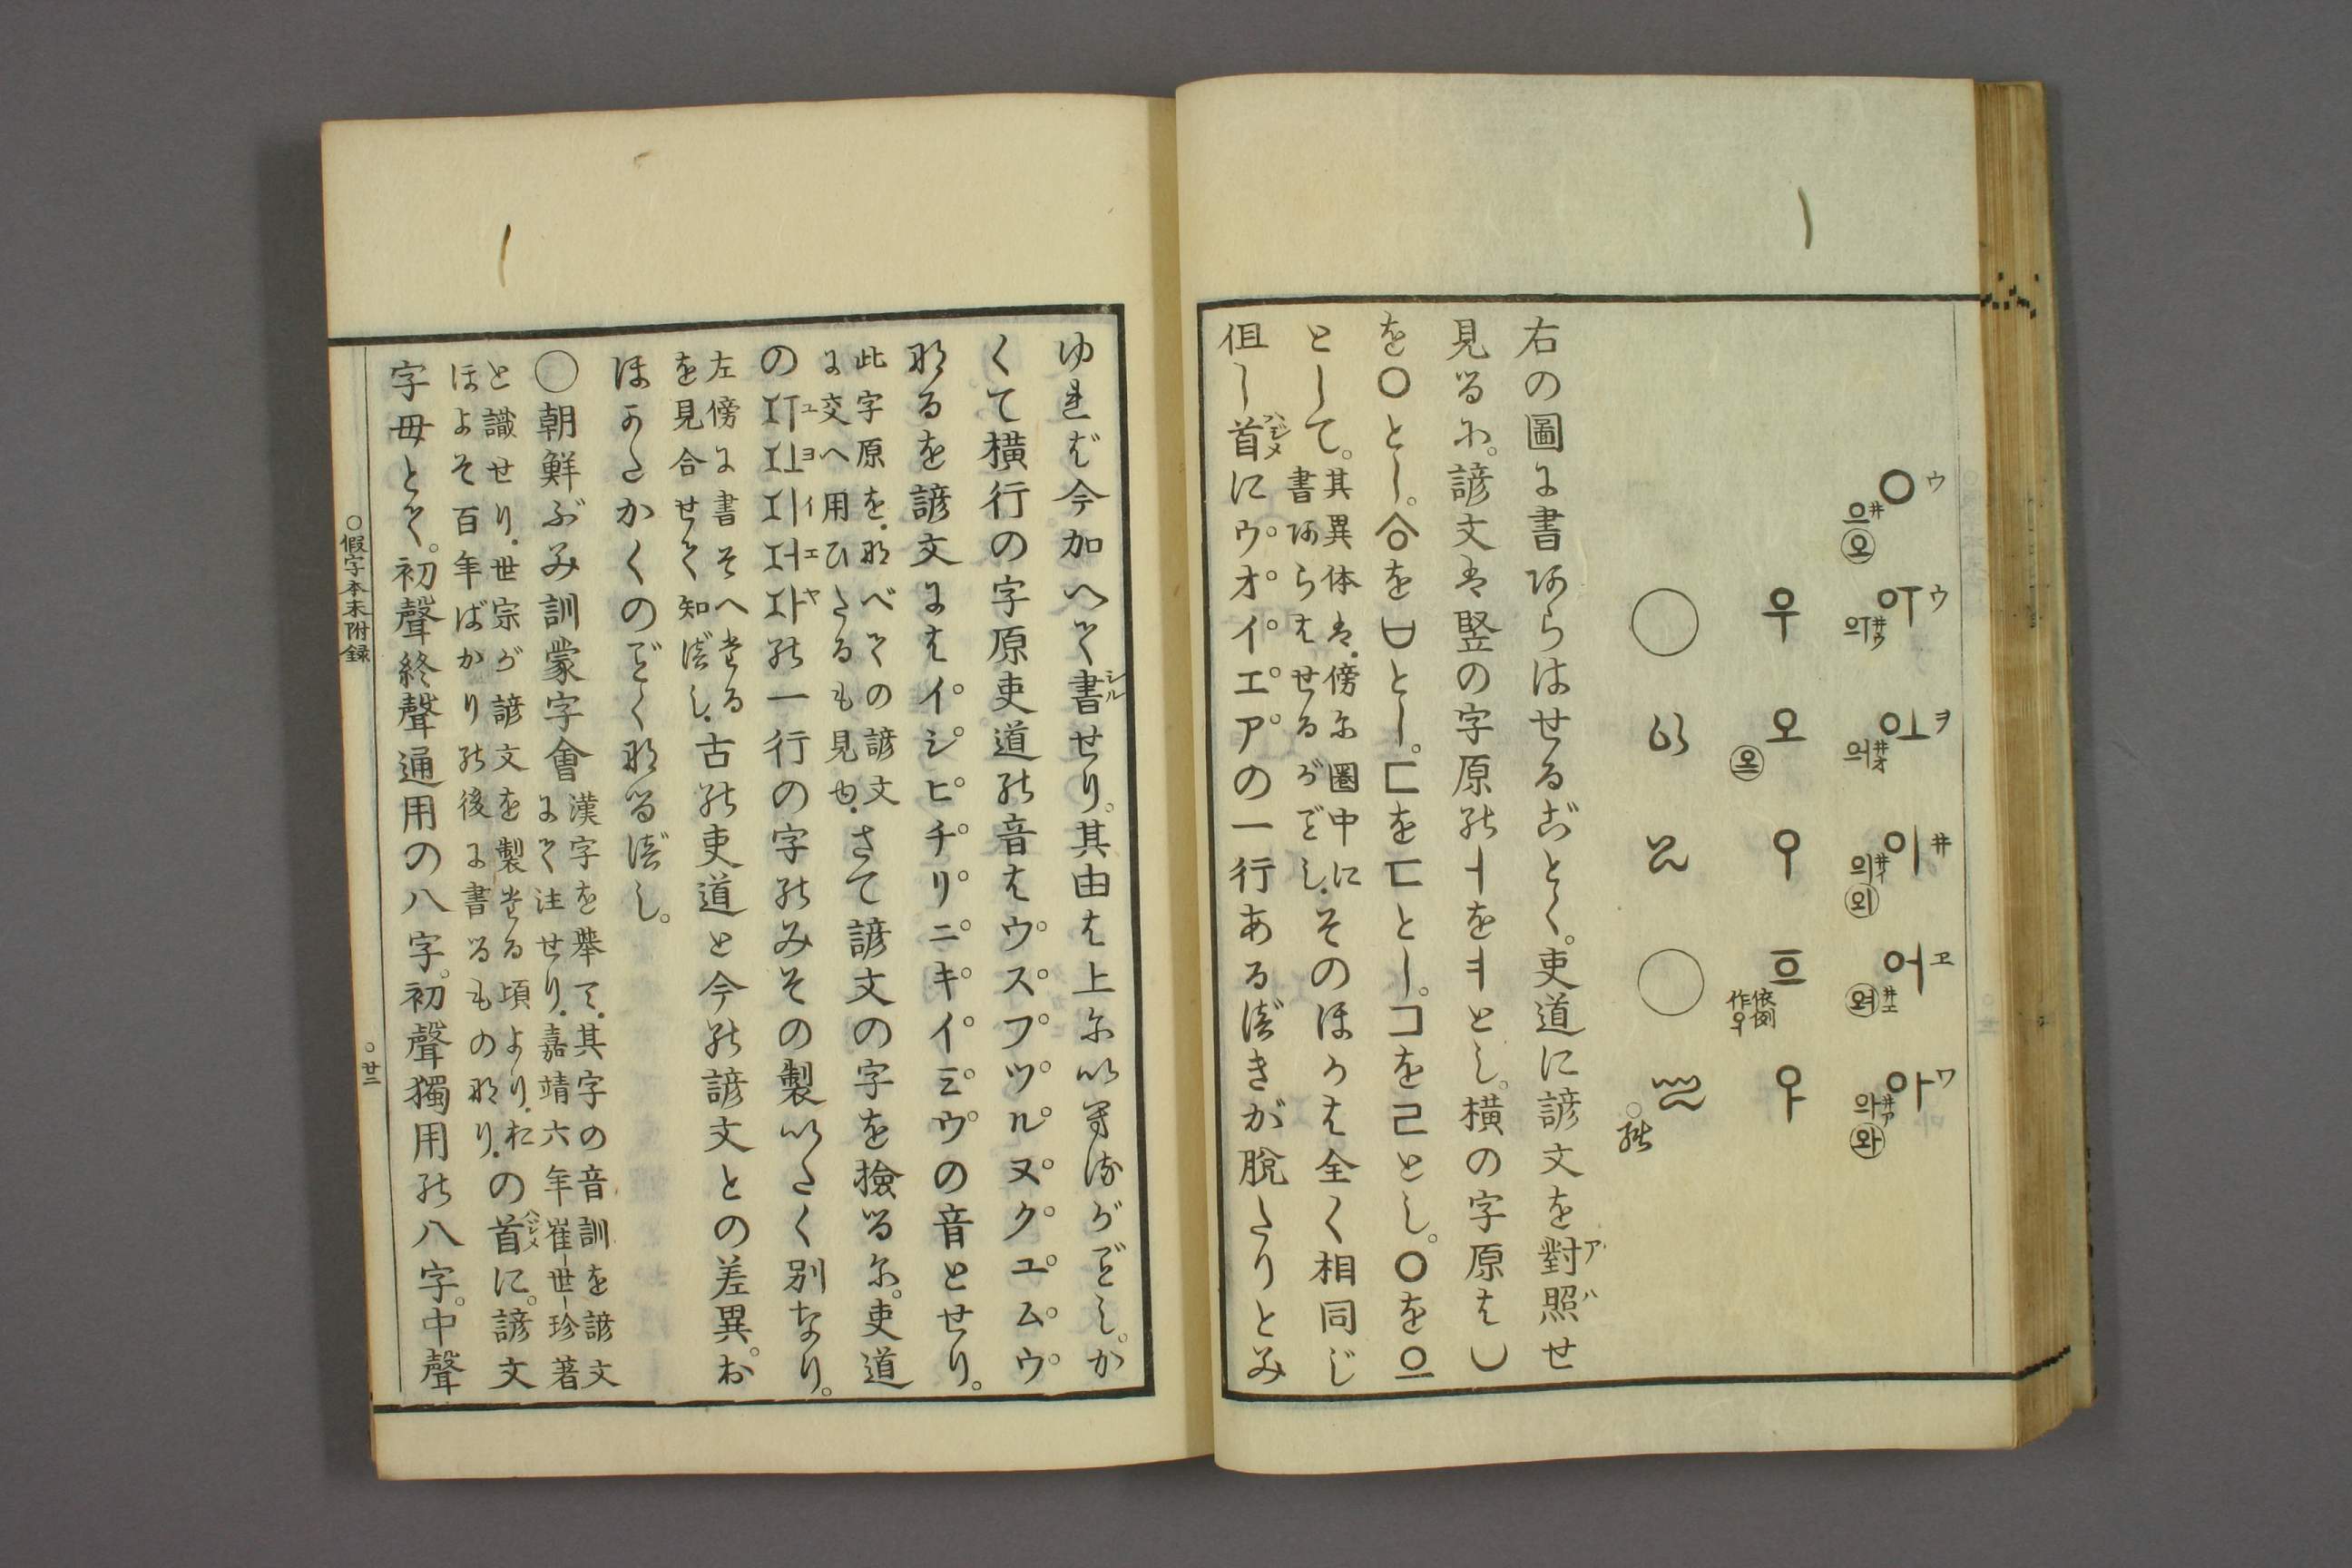 ウ ㅇ 으 井 오
ウ ㅇㅜ 井ウ
ヲ ㅇㅗ 井オ
井 이 井イ 의 외
ヱ 어 井エ
ワ 아 井ア 와
우 오 으
依例作우
○の
右の圖に書あらはせるごとく。吏道に諺文を對照せ
アハ
見るに。諺文は竪の字原のㅓをㅕとし。横の字原は◡
を○とし。をとし。ㄷを匚とし。コを己とし。○を으
として。
其異体は.傍に圏中に
書あらはせるがごとし.
そのほかは全く相同じ
但し首にウ゜オ゜イ゜エ゜ア゜の一行あるべきが脱たりとみ
ハジメ
ゆれば今加へて書せり。其由は上にいへるがごとし。か
シル
くて横行の字原吏道の音はウ゜ス゜プ゜ツ゜ル゜ヌ゜ク゜ユ゜ム゜ウ゜
なるを諺文にはイ゜シ゜ピ゜チ゜リ゜ニ゜キ゜イ゜ミ゜ウ゜の音とせり。
此字原を.なべての諺文
に交へ用ひたるも見ゆ.
さて諺文の字を撿るに。吏道
のㅛㅣㅓㅏの一行の字のみその製いたく別なり。
ユ ヨ イ エ ヤ
左傍に書そへたる
を見合せて知べし.
古の吏道と今の諺文との差異。お
ほかたかくのごとくなるべし。
○朝鮮ぶみ訓蒙字會
漢字を舉て.其字の音訓を諺文
にて注せり.嘉靖六年崔世珍著
と識せり.世宗が諺文を製たる頃より.お
ほよそ百年ばかりの後に書るものなり.
の首に。諺文
ハジメ
字母とて。初聲終聲通用の八字。初聲獨用の八字。中聲
○假字本末附録
○廿二